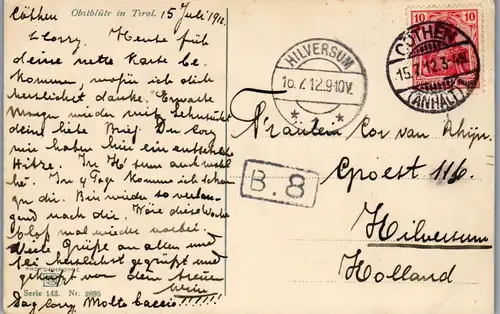 Obstblüte in Tirol.
Cöthen 15 Juli 1912.
L. Corry. Heute früh
deine nette Karte be-
kommen, wofür ich dich
herzlichst danke. Erwarte
Morgen wieder mit Sehnsucht
dein liebe Brief. Du Cory
wir haben hier ein entsetzliche
Hitze. In H' sum auch wohl
he?. In 4 Tage komme ich schon
zu dir. Bin wieder so verlan-
gend nach dir. Wäre diese Woche
bloß mal wieder vorbei.
Viele Grüße an allen und
sei herzlichst gegrüßt und
geküsst von dein Treuer
Wim
Dag Cory Molte baccio!!!!!!
PHOTOCHROMIE
Serie 143. Nr. 2695
HILVERSUM
16.7.12.9-10V.
10 10
CÖTHEN
15.7.12.3-4N.
(ANHALT)
Fräulein Cor van Rhijn
Gpoest 116.
B.8
Hilversum
Holland